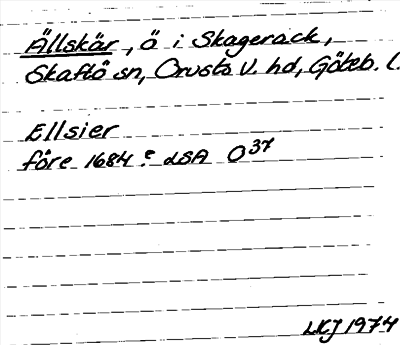 Ällskär, ö i Skagerack,
Skaftö sn, Orusts V. hd, Göteb. l.
Ellsier
före 1684? LSA O37
LKJ 1974